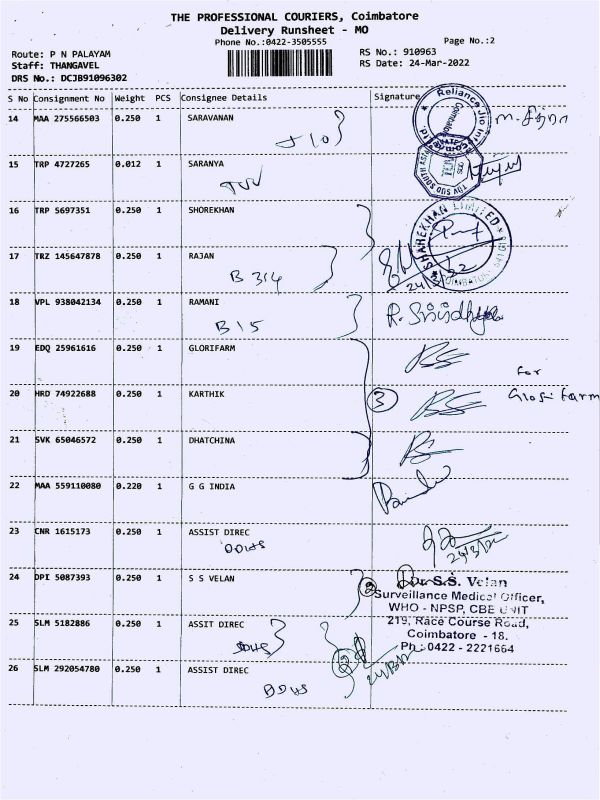 THE PROFESSIONAL COURIERS, Coimbatore
Delivery Runsheet - MO
Phone No.:0422-3505555
Page No.:2
Route: P N PALAYAM
RS No.: 910963
Staff: THANGAVEL
RS Date: 24-Mar-2022
DRS No.: DCJB91096302
S No Consignment No Weight PCS Consignee Details Signature
14 MAA 275566503 0.250 1 SARAVANAN
JIO
Reliance Jio
15 TRP 4727265 0.012 1 SARANYA
TUV
TUV SUD SOUTH ASIA
16 TRP 5697351 0.250 1 SHOREKHAN
SHAREKHAN LIMITED
17 TRZ 145647878 0.250 1 RAJAN
B 314
24/3/22
18 VPL 938042134 0.250 1 RAMANI
B 15
19 EDQ 25961616 0.250 1 GLORIFARM
for
20 HRD 74922688 0.250 1 KARTHIK
3
Glorifarm
21 SVK 65046572 0.250 1 DHATCHINA
22 MAA 559110080 0.220 1 G G INDIA
23 CNR 1615173 0.250 1 ASSIST DIREC
DDHS
24 DPI 5087393 0.250 1 S S VELAN
2
Dr. S.S. Velan
Surveillance Medical Officer,
WHO - NPSP, CBE UNIT
219, Race Course Road,
Coimbatore - 18.
Ph : 0422 - 2221664
25 SLM 5182886 0.250 1 ASSIT DIREC
DDHS
2
26 SLM 292054780 0.250 1 ASSIST DIREC
DDHS